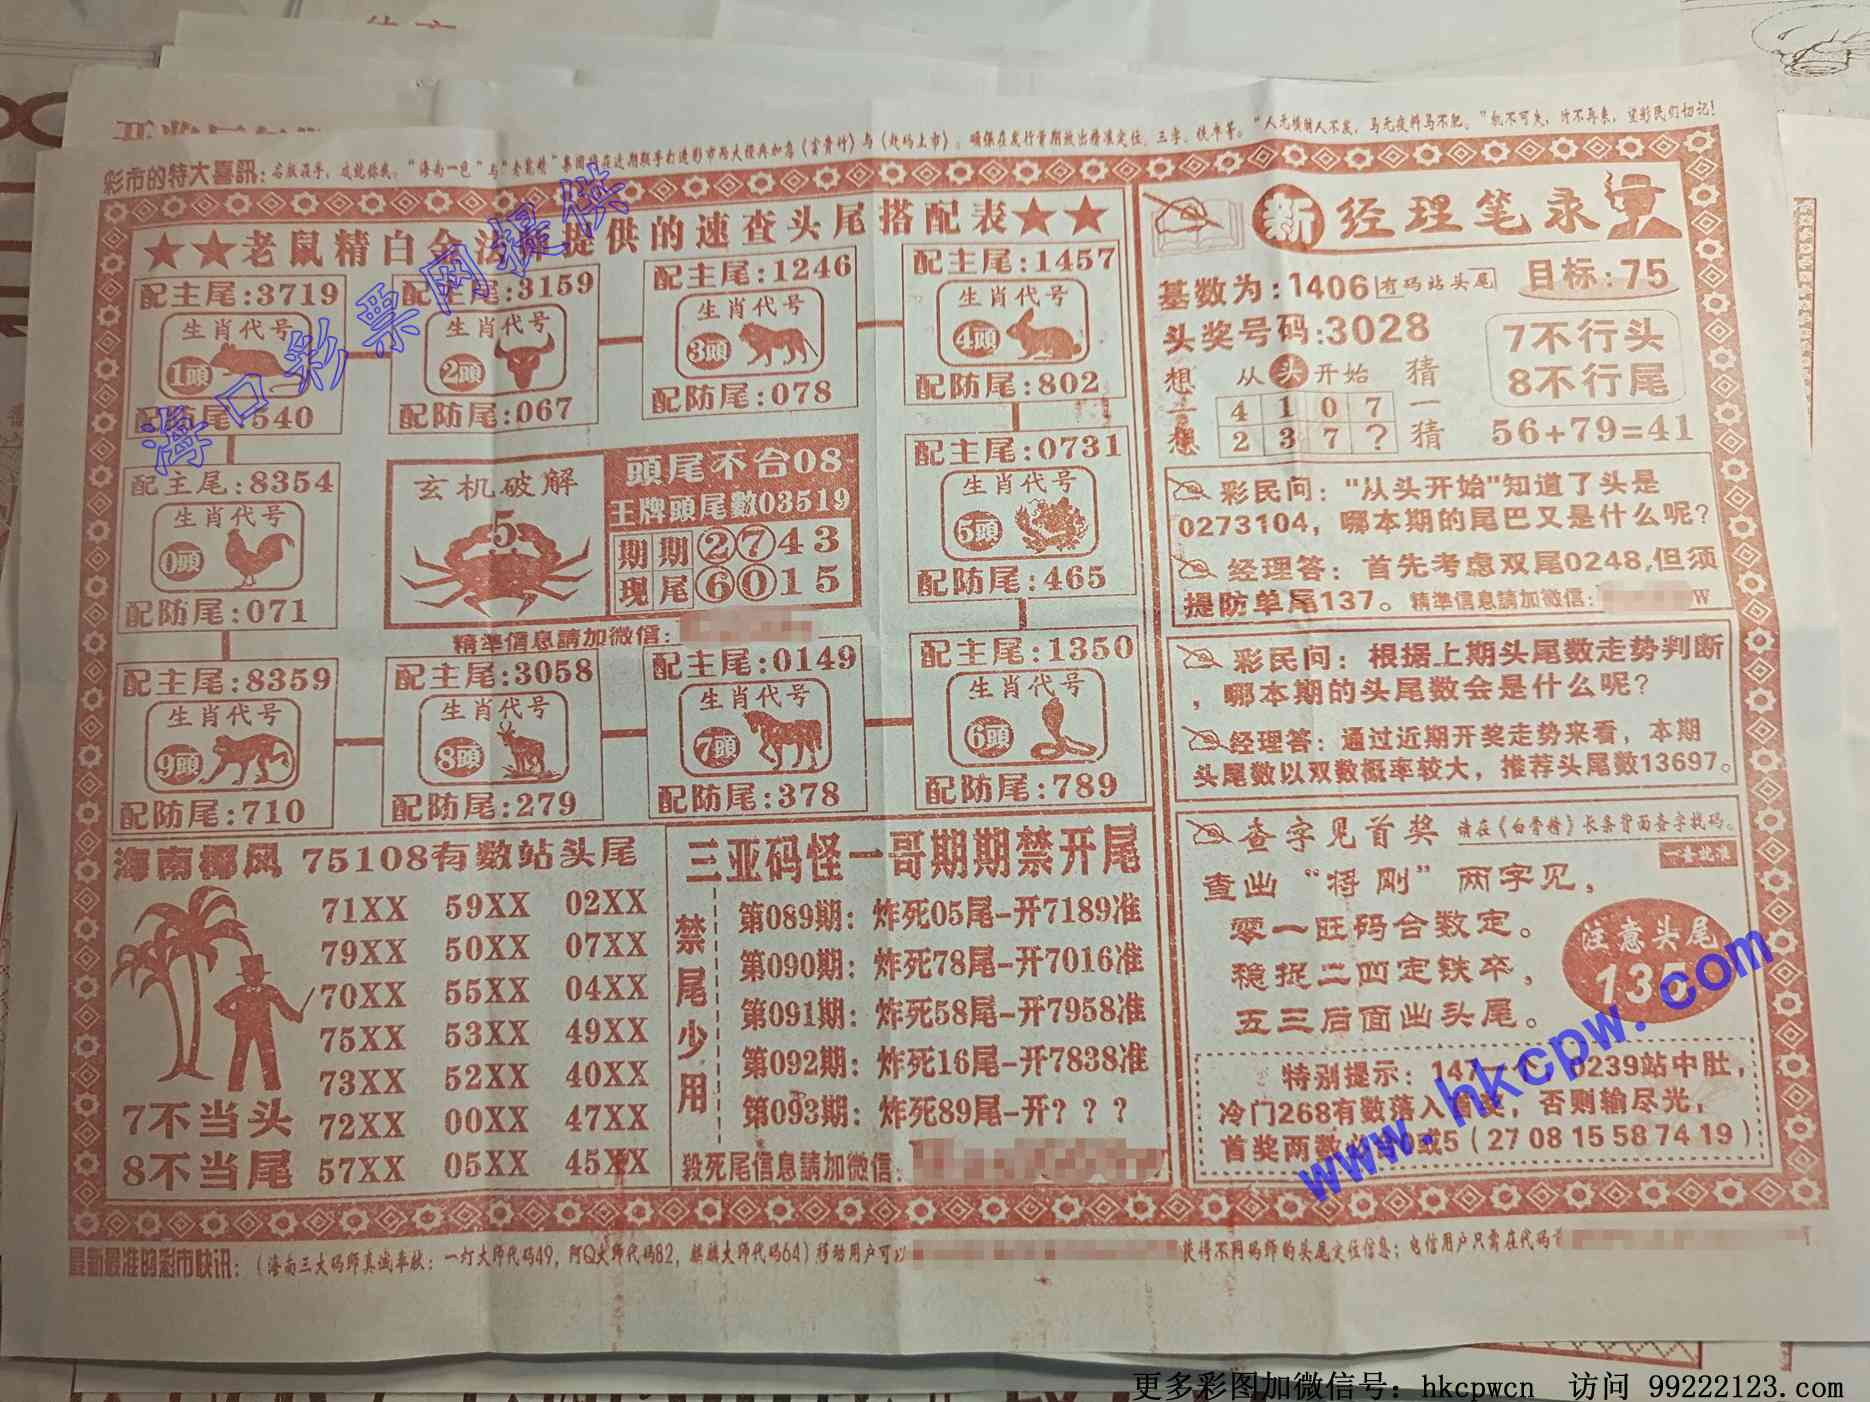 彩市的特大喜訊：
“人无横财人不发，马无夜料马不肥。”机不可失，时不再来，望彩民们切记！
★★老鼠精白金法师提供的速查头尾搭配表★★
配主尾:3719
生肖代号
1頭
配防尾:540
配主尾:3159
生肖代号
2頭
配防尾:067
配主尾:1246
生肖代号
3頭
配防尾:078
配主尾:1457
生肖代号
4頭
配防尾:802
配主尾:8354
生肖代号
0頭
配防尾:071
玄机破解
5
頭尾不合08
王牌頭尾數03519
期期②⑦43
现尾⑥⓪15
精準信息請加微信：
配主尾:0731
生肖代号
5頭
配防尾:465
配主尾:8359
生肖代号
9頭
配防尾:710
配主尾:3058
生肖代号
8頭
配防尾:279
配主尾:0149
生肖代号
7頭
配防尾:378
配主尾:1350
生肖代号
6頭
配防尾:789
海南椰风 75108有数站头尾
71XX 59XX 02XX
79XX 50XX 07XX
70XX 55XX 04XX
75XX 53XX 49XX
73XX 52XX 40XX
72XX 00XX 47XX
57XX 05XX 45XX
7不当头
8不当尾
三亚码怪一哥期期禁开尾
禁尾少用
第089期：炸死05尾-开7189准
第090期：炸死78尾-开7016准
第091期：炸死58尾-开7958准
第092期：炸死16尾-开7838准
第093期：炸死89尾-开？？？
殺死尾信息請加微信：
新 经理笔录
基数为:1406 有码站头尾 目标:75
头奖号码:3028
7不行头
8不行尾
想一想
从头开始
猜一猜
4 1 0 7
2 3 7 ?
56+79=41
彩民问："从头开始"知道了头是
0273104，哪本期的尾巴又是什么呢?
经理答：首先考虑双尾0248,但须
提防单尾137。精準信息請加微信: W
彩民问：根据上期头尾数走势判断
，哪本期的头尾数会是什么呢?
经理答：通过近期开奖走势来看，本期
头尾数以双数概率较大，推荐头尾数13697。
查字见首奖 请在《白骨精》长条背面查字找码。
一查就准
查出“将刚”两字见，
零一旺码合数定。
稳捉二四定铁卒，
五三后面出头尾。
注意头尾
135
特别提示：147一个 0239站中肚，
冷门268有数落入首奖，否则输尽光，
首奖两数必 0或5（27 08 15 58 74 19）
最新最准的彩市快讯：（海南三大码师真诚奉献：一灯大师代码49，阿Q大师代码82，麒麟大师代码64）移动用户可以
获得不同码师的头尾定位信息；电信用户只需在代码前
海口彩票网提供
www.hkcpw.com
更多彩图加微信号：hkcpwcn 访问 99222123.com